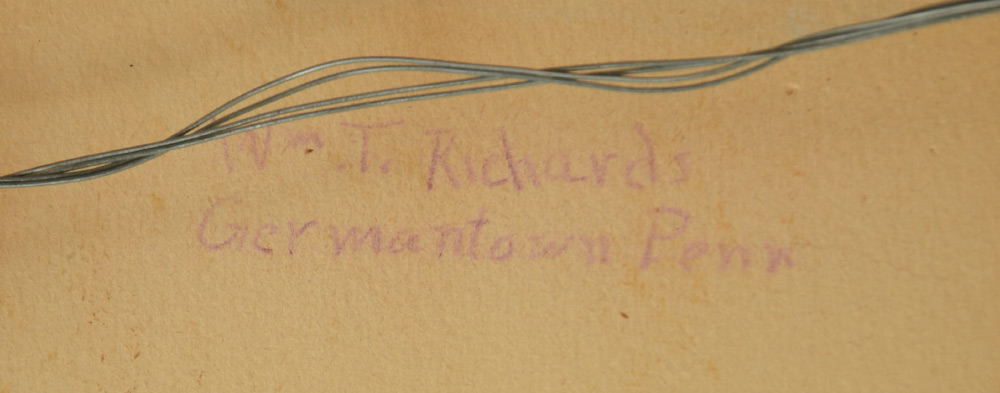 Wm. T. Richards
Germantown Penn